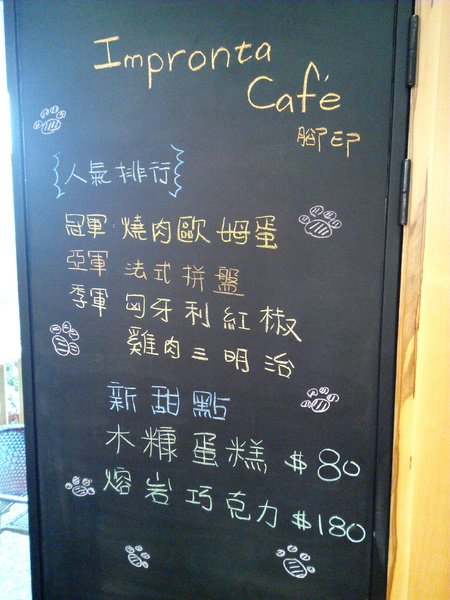 Impronta
Café
腳印
人氣排行
冠軍 燒肉歐姆蛋
亞軍 法式拼盤
季軍 匈牙利紅椒
雞肉三明治
新甜點
木糠蛋糕 $80
熔岩巧克力 $180